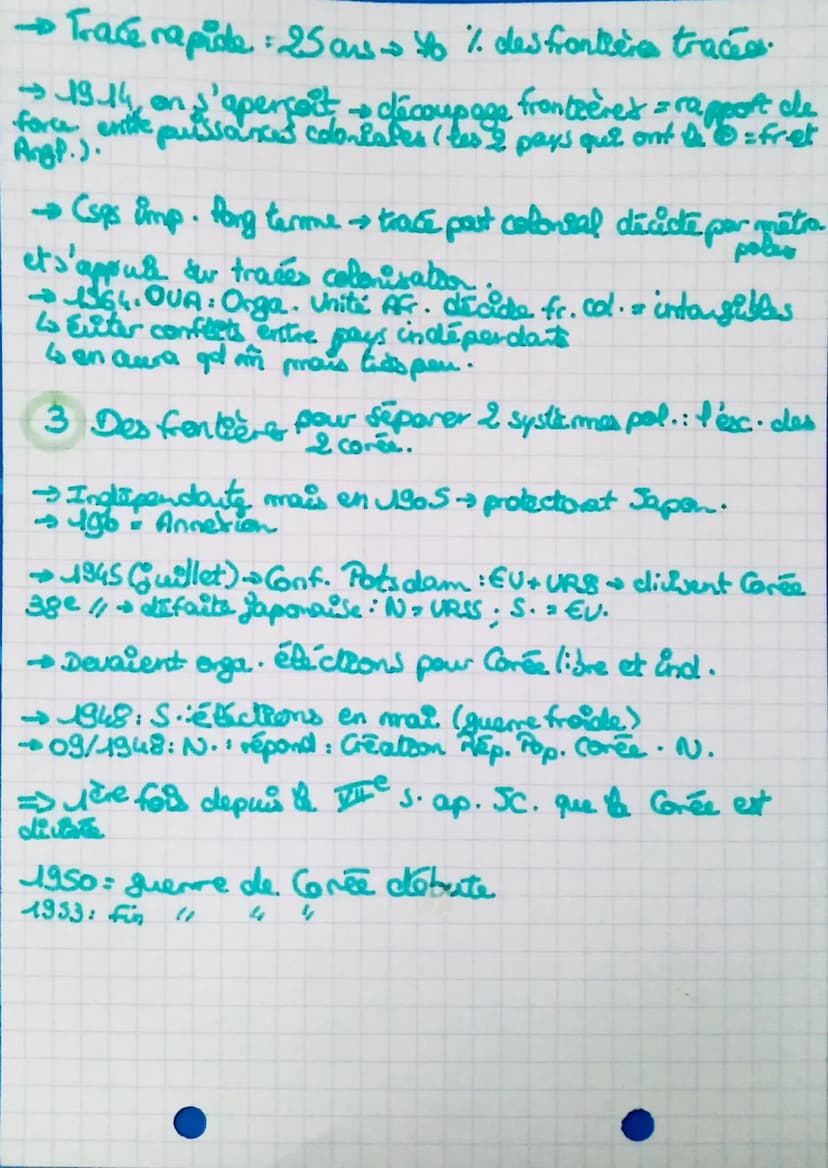 → Tracé rapide : 25 ans → 70 % des frontières tracées.
→ 1914, on s'aperçoit → découpage frontières = rapport de
force entre puissances coloniales (les 2 pays qui ont le ⊕ = fr et
Angl.).
→ Csqs imp. long terme → tracé post colonial décidé par métro
poles
et s'appuie sur tracés colonisation.
→ 1964. OUA : Orga. Unité Afr. décide fr. col. = intangibles
↳ Éviter conflits entre pays indépendants
↳ en aura qd m̂ mais très peu.
3 Des frontière pour séparer 2 systèmes pol. : l'ex. des
2 corée.
→ Indépendante mais en 1905 → protectorat Japon.
→ 1910 = Annexion
→ 1945 (juillet) → Conf. Potsdam : EU + URSS → divisent Corée
38e // → défaite japonaise : N = URSS ; S. = EU.
→ Devaient orga. éléctions pour Corée libre et ind.
→ 1948 : S. : éléctions en mai (guerre froide)
→ 09/1948 : N. : répond : Création Rép. Pop. Corée. N.
⇒ 1ère fois depuis le VIIe s. ap. JC. que la Corée est
divisée
1950 = guerre de Corée débute
1953 : fin " " "